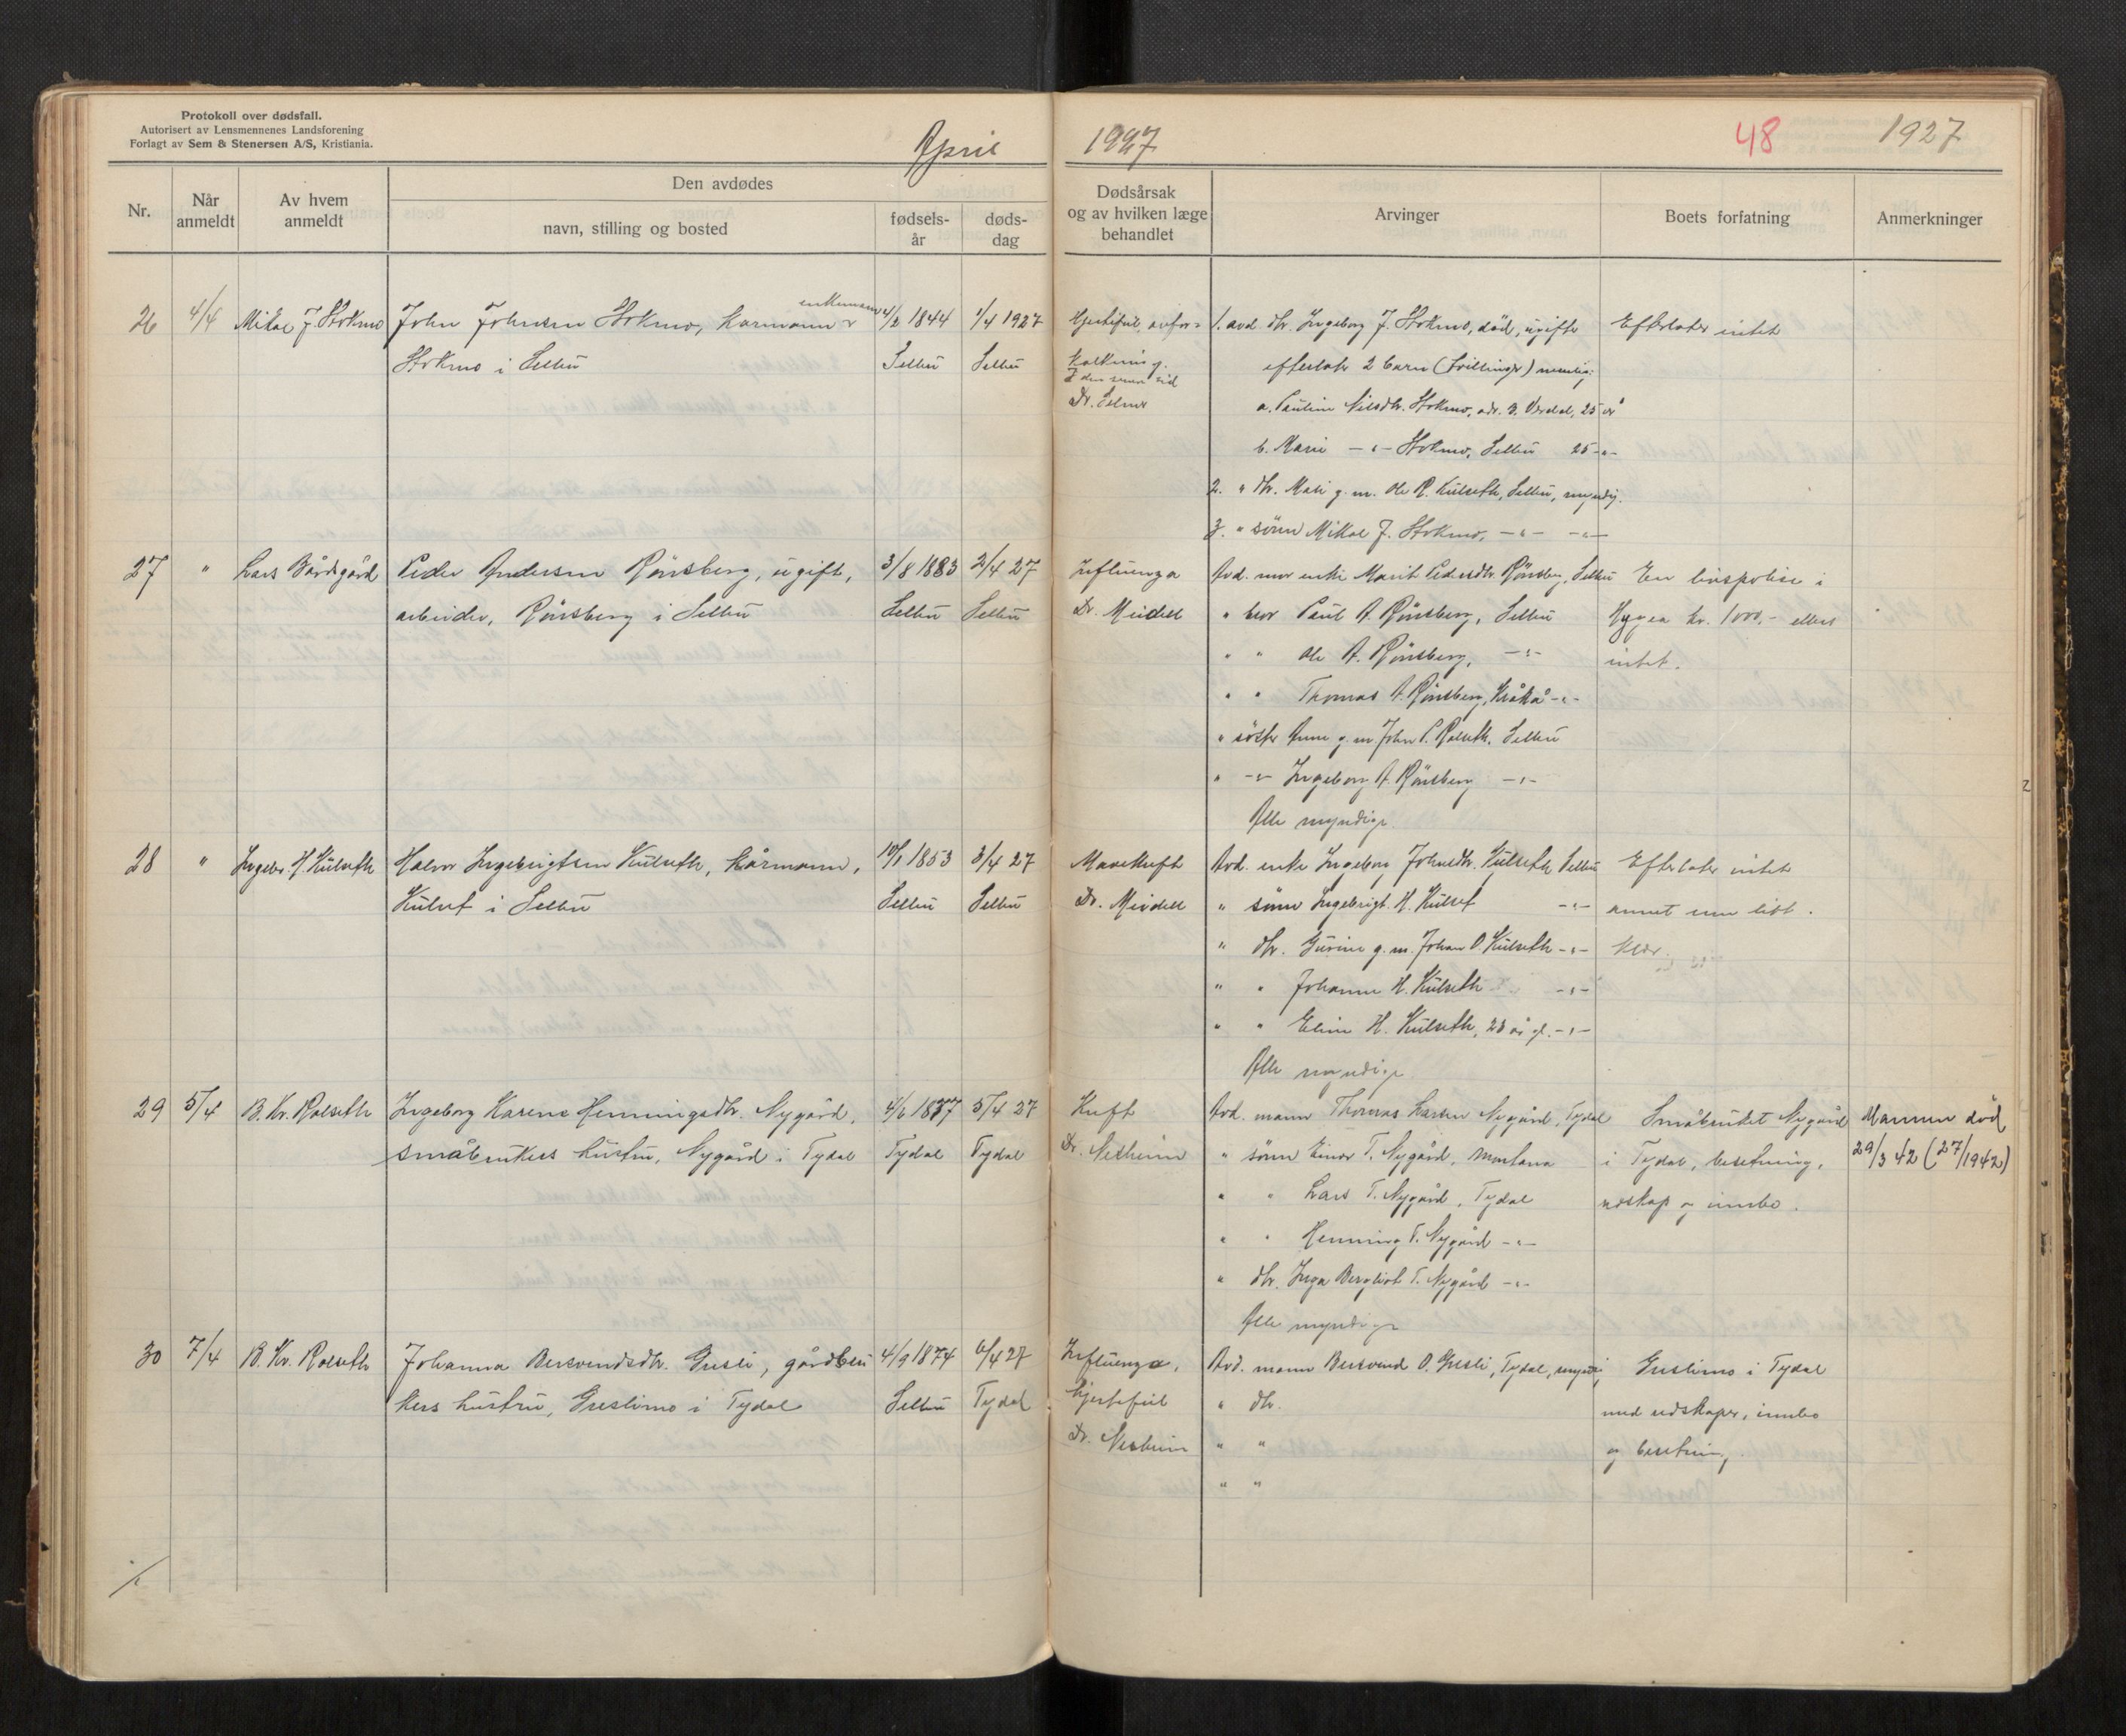 Protokoll over dødsfall.
Autorisert av Lensmennenes Landsforening
Forlagt av Sem & Stenersen A/S, Kristiania.
April 1927
48 1927
Nr.
Når anmeldt
Av hvem anmeldt
Den avdødes
navn, stilling og bosted
fødsels-år
døds-dag
Dødsårsak og av hvilken læge behandlet
Arvinger
Boets forfatning
Anmerkninger
26 4/4 Mikal J. Stokmo
John Johnsen Stokmo, kårmann enkemann
Stokmo i Selbu
4/2 1844 1/4 1927
Selbu Selbu
Hjertefeil, årefor=
kalkning.
Dr. Selmer
1. avd. dtr. Ingeborg J. Stokmo, død, ugift
efterlater 2 barn (tvillinger) nemlig:
a. Pauline Nilsdtr. Stokmo, adr. Verdal, 25 år
b. Marie -"- Stokmo, Selbu 25 -"-
2. " dtr. Mali g. m. Ole R. Kulseth, Selbu, myndig.
3. " sønn Mikal J. Stokmo, -"- -"-
Efterlater intet
27 " Lars Bårdsgård
Peder Andersen Rønsberg, ugift,
arbeider, Rønsberg i Selbu
3/8 1883 2/4 27
Selbu Selbu
Influenza
Dr. Meidell
Avd. mor enke Marit Pedersdtr. Rønsberg, Selbu
" bror Paul A. Rønsberg, Selbu
" " Ole A. Rønsberg, -"-
" " Thomas A. Rønsberg, Kråkå -"-
" søster Anne g. m. John P. Rolseth, Selbu
" -"- Ingeborg A. Rønsberg -"-
Alle myndige
En livspolise i
Hygea kr. 1000,- ellers
intet.
28 " Ingebr. H. Kulseth
Halvor Ingebrigtsen Kulseth, kårmann,
Kulset i Selbu
10/1 1853 3/4 27
Selbu Selbu
Mavekreft
Dr. Meidell
Avd. enke Ingeborg Johnsdtr. Kulseth Selbu
" sønn Ingebrigt H. Kulset -"-
" dtr. Gurine g. m. Johan O. Kulseth -"-
" " Johanna H. Kulseth -"-
" " Eline H. Kulseth, 23 år gl. -"-
Alle myndige
Efterlater intet
annet enn litt
klær.
29 5/4 B. Kr. Rolseth
Ingeborg Karens Henningsdtr. Nygård,
småbrukers hustru, Nygård i Tydal
4/6 1877 5/4 27
Tydal Tydal
Kreft
Dr. Nesheim
Avd. mann Thomas Larsen Nygård, Tydal
" sønn Einar T. Nygård, Montana
" " Lars T. Nygård, Tydal
" " Henning T. Nygård -"-
" dtr. Inga Bergliot T. Nygård -"-
Alle myndige
Småbruket Nygård
i Tydal, besetning,
redskap og innbo.
Mannen død
29/3 42 (27/1942)
30 7/4 B. Kr. Rolseth
Johanna Bersvendsdtr. Gresli, gårdbru
kers hustru, Greslimo i Tydal
4/9 1874 6/4 27
Selbu Tydal
Influenza,
hjertefeil
Dr. Nesheim
Avd. mann Bersvend O. Gresli, Tydal, myndig
" dtr.
" "
" "
Greslimo i Tydal
med redskaper, innbo
og besetning.